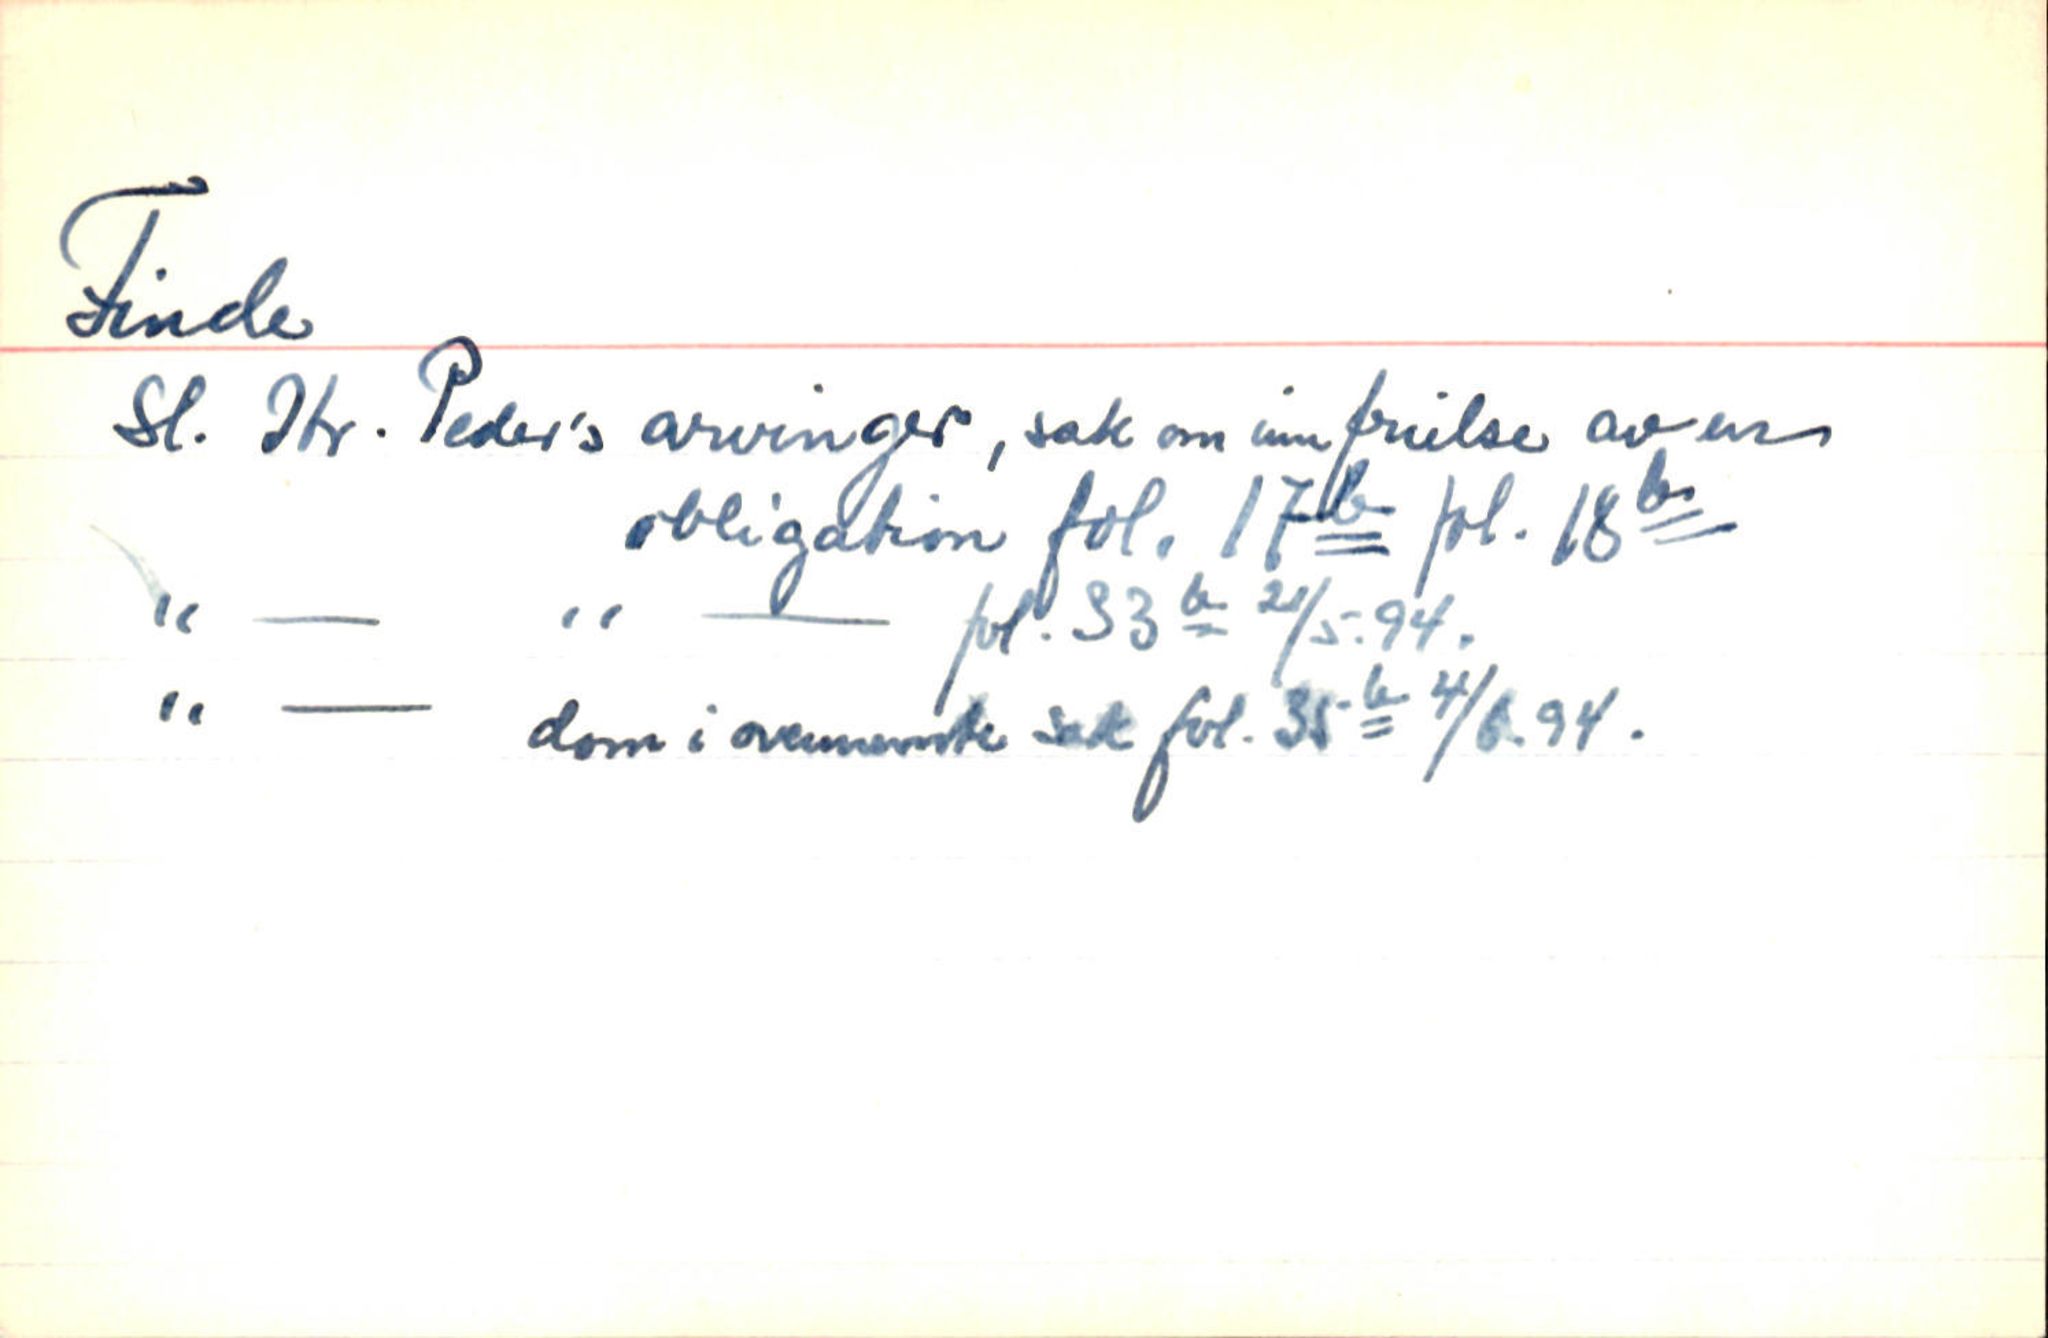 Finde
Sl. Hr. Peder's arvinger, sak om innfrielse av en
obligation fol. 17b fol. 18b
" — " — fol. 33b 21/5.94.
" — dom i ovennevnte sak fol. 35b 4/6.94.